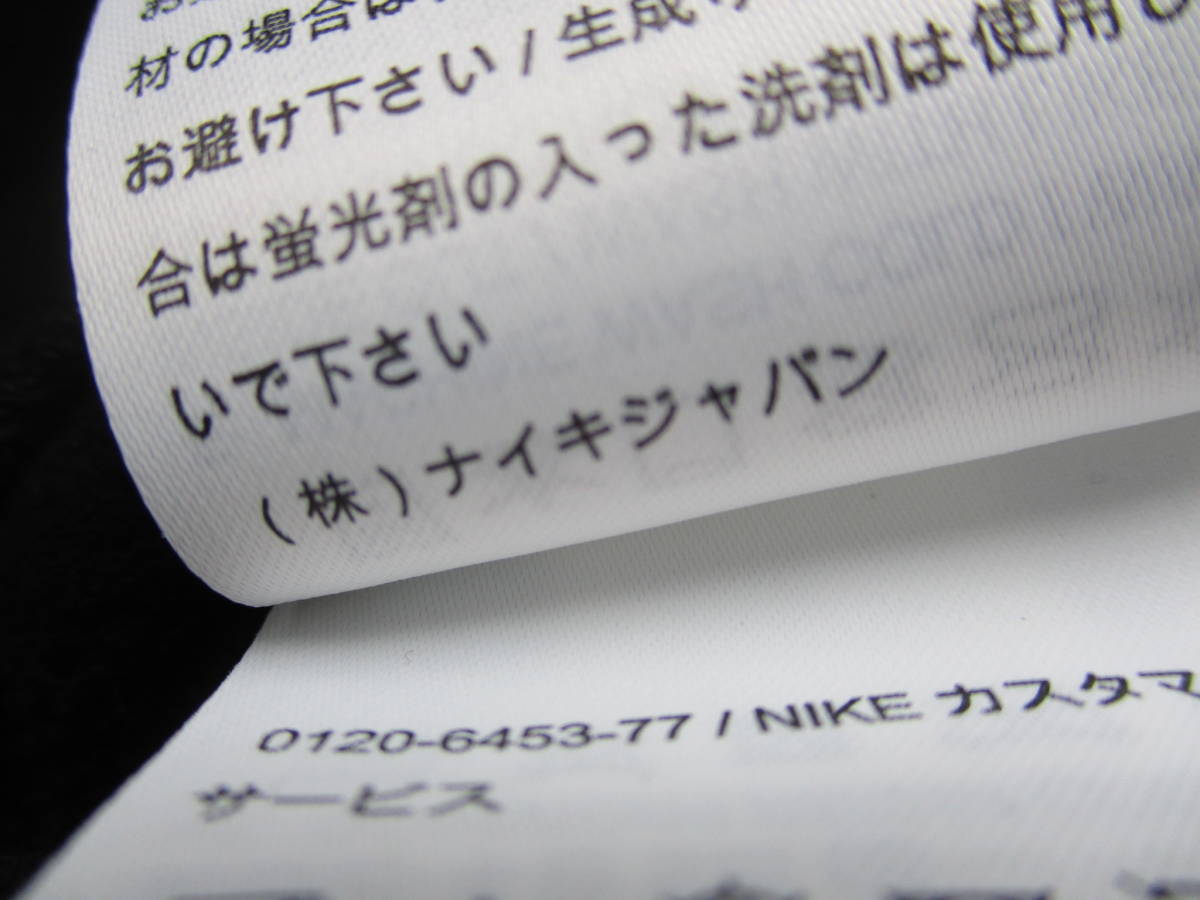 材の場合は
お避け下さい / 生成り
合は蛍光剤の入った洗剤は使用し
いで下さい
(株)ナイキジャパン
0120-6453-77 / NIKE カスタマ
サービス